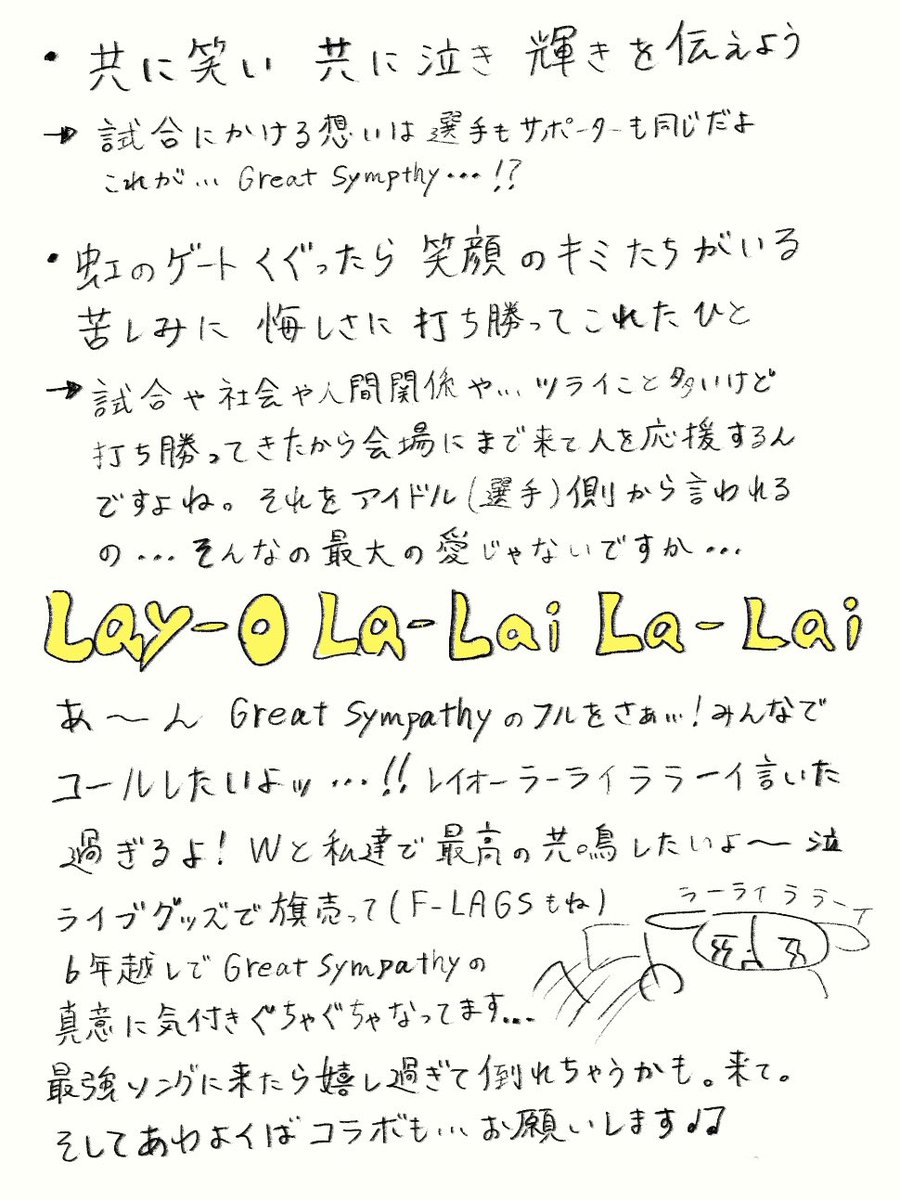 ・共に笑い 共に泣き 輝きを伝えよう
→ 試合にかける想いは選手もサポーターも同じだよ
これが… Great Sympthy…!?
・虹のゲートくぐったら 笑顔のキミたちがいる
苦しみに 悔しさに 打ち勝ってこれたひと
→ 試合や社会や人間関係や… ツライこと多いけど
打ち勝ってきたから会場にまで来て人を応援するん
ですよね。それをアイドル(選手)側から言われる
の…そんなの最大の愛じゃないですか…
Lay-O La-Lai La-Lai
あ〜ん Great Sympathyのフルをさぁ…!みんなで
コールしたいよッ…!! レイオーラーライララーイ言いた
過ぎるよ! Wと私達で最高の共鳴したいよ〜泣
ライブグッズで旗売って(F-LAGSもね)
ラーライララーイ
6年越しでGreat Sympathyの
真意に気付きぐちゃぐちゃなってます…
最強ソングに来たら嬉し過ぎて倒れちゃうかも。来て。
そしてあわよくばコラボも…お願いします♪♫